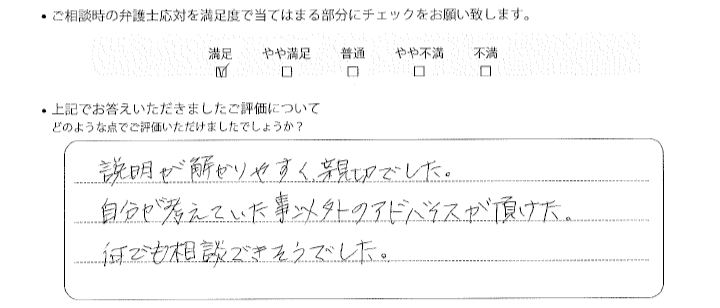 • ご相談時の弁護士応対を満足度で当てはまる部分にチェックをお願い致します。
満足 やや満足 普通 やや不満 不満
☑ □ □ □ □
• 上記でお答えいただきましたご評価について
どのような点でご評価いただけましたでしょうか？
説明が解かりやすく、親切でした。
自分が考えていた事以外のアドバイスが頂けた。
何でも相談できそうでした。